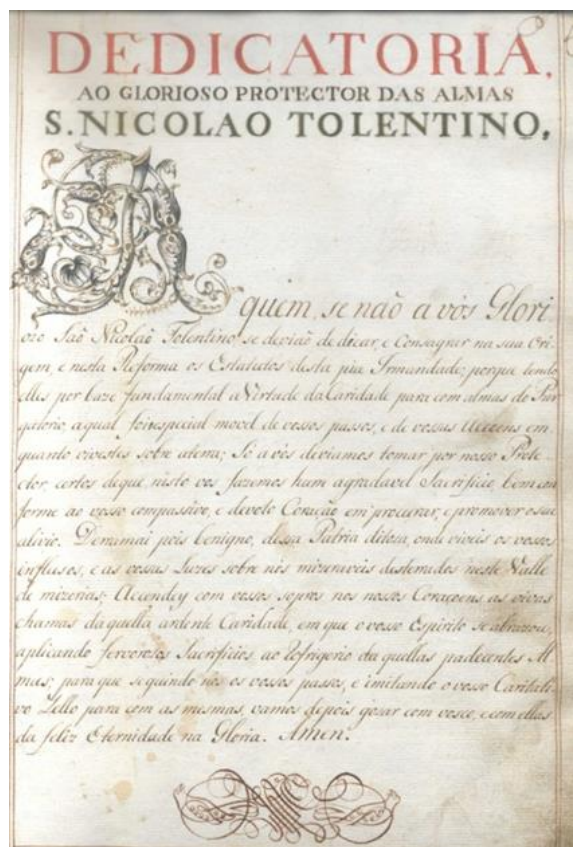 DEDICATORIA,
AO GLORIOSO PROTECTOR DAS ALMAS
S. NICOLAO TOLENTINO,
A quem, se não a vós Glori
ozo São Nicoláo Tolentino, se devião dedicar, e Consagrar na sua Ori
gem, e nesta Reforma os Estatutos desta pia Irmandade; porque tendo
elles por baze fundamental a Virtude da Caridade para com almas do Pur
gatorio, a qual foi especial movel de vossos passos, e de vossas Accoens em
quanto vivestes sobre aterra; Só a vós deviamos tomar por nosso Prote-
ctor, certos de que nisto vos fazemos hum agradavel Sacrificio, bem con
forme ao vosso compassivo, e devoto Coração em procurar, e promover o seu
alivio. Derramai pois benigno, dessa Patria ditosa, onde viveis os vossos
influxos, e as vossas Luzes sobre nós mizeraveis desterrados neste Valle
de mizerias: Accendey com vossos sopros nos nossos Coraçoens as vivas
chamas daquella ardente Caridade, em que o vosso Espirito se abrazou,
aplicando fervorosos Sacrificios, ao Refrigerio daquellas padecentes Al
mas; para que seguindo nós os vossos passos, e imitando o vosso Caritati
vo Zello para com as mesmas, vamos depois gosar com vosco, e com ellas
da feliz Eternidade na Gloria. Amen.